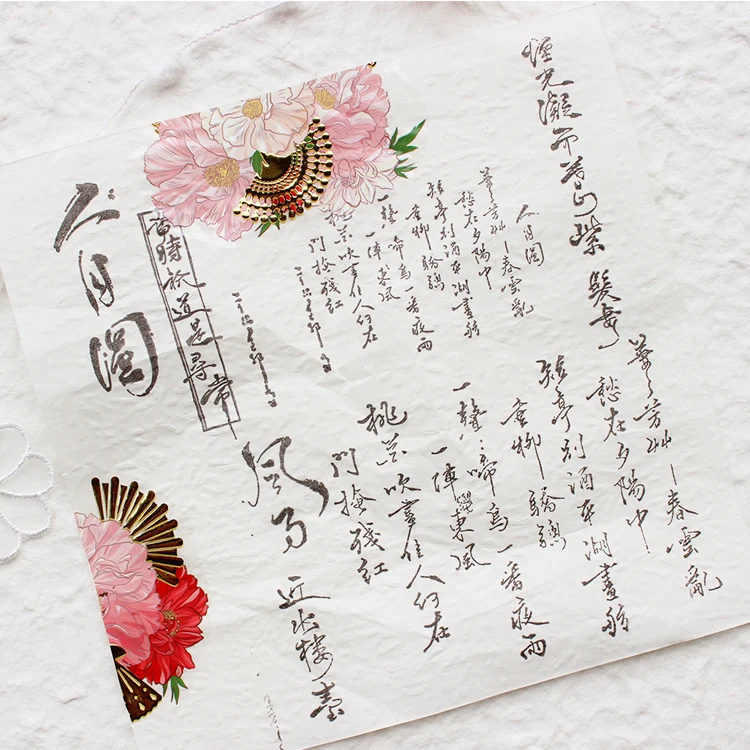 煙光凝而暮山紫
人月圓
萋〻芳艸一春雲亂
愁在夕陽中
短亭別酒平湖畫舫
垂柳驕驄
一聲啼鳥一番夜雨
一陣東風
桃花吹盡佳人何在
門掩殘紅
萋〻芳艸一春雲亂
愁在夕陽中
短亭別酒平湖畫舫
垂柳驕驄
一聲啼鳥一番夜雨
一陣東風
桃花吹盡佳人何在
門掩殘紅
當時祗道是尋常
人月圓
近水樓臺